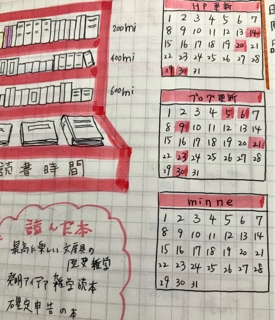 200mi
400mi
600mi
読書時間
読んだ本
最高に楽しい文房具の
歴史雑学
発明アイデア雑学読本
HP更新
1 2 3 4 5 6 7
8 9 10 11 12 13 14
15 16 17 18 19 20 21
22 23 24 25 26 27 28
29 30 31
ブログ更新
1 2 3 4 5 6 7
8 9 10 11 12 13 14
15 16 17 18 19 20 21
22 23 24 25 26 27 28
29 30 31
minne
1 2 3 4 5 6 7
8 9 10 11 12 13 14
15 16 17 18 19 20 21
22 23 24 25 26 27 28
29 30 31
日
用
品